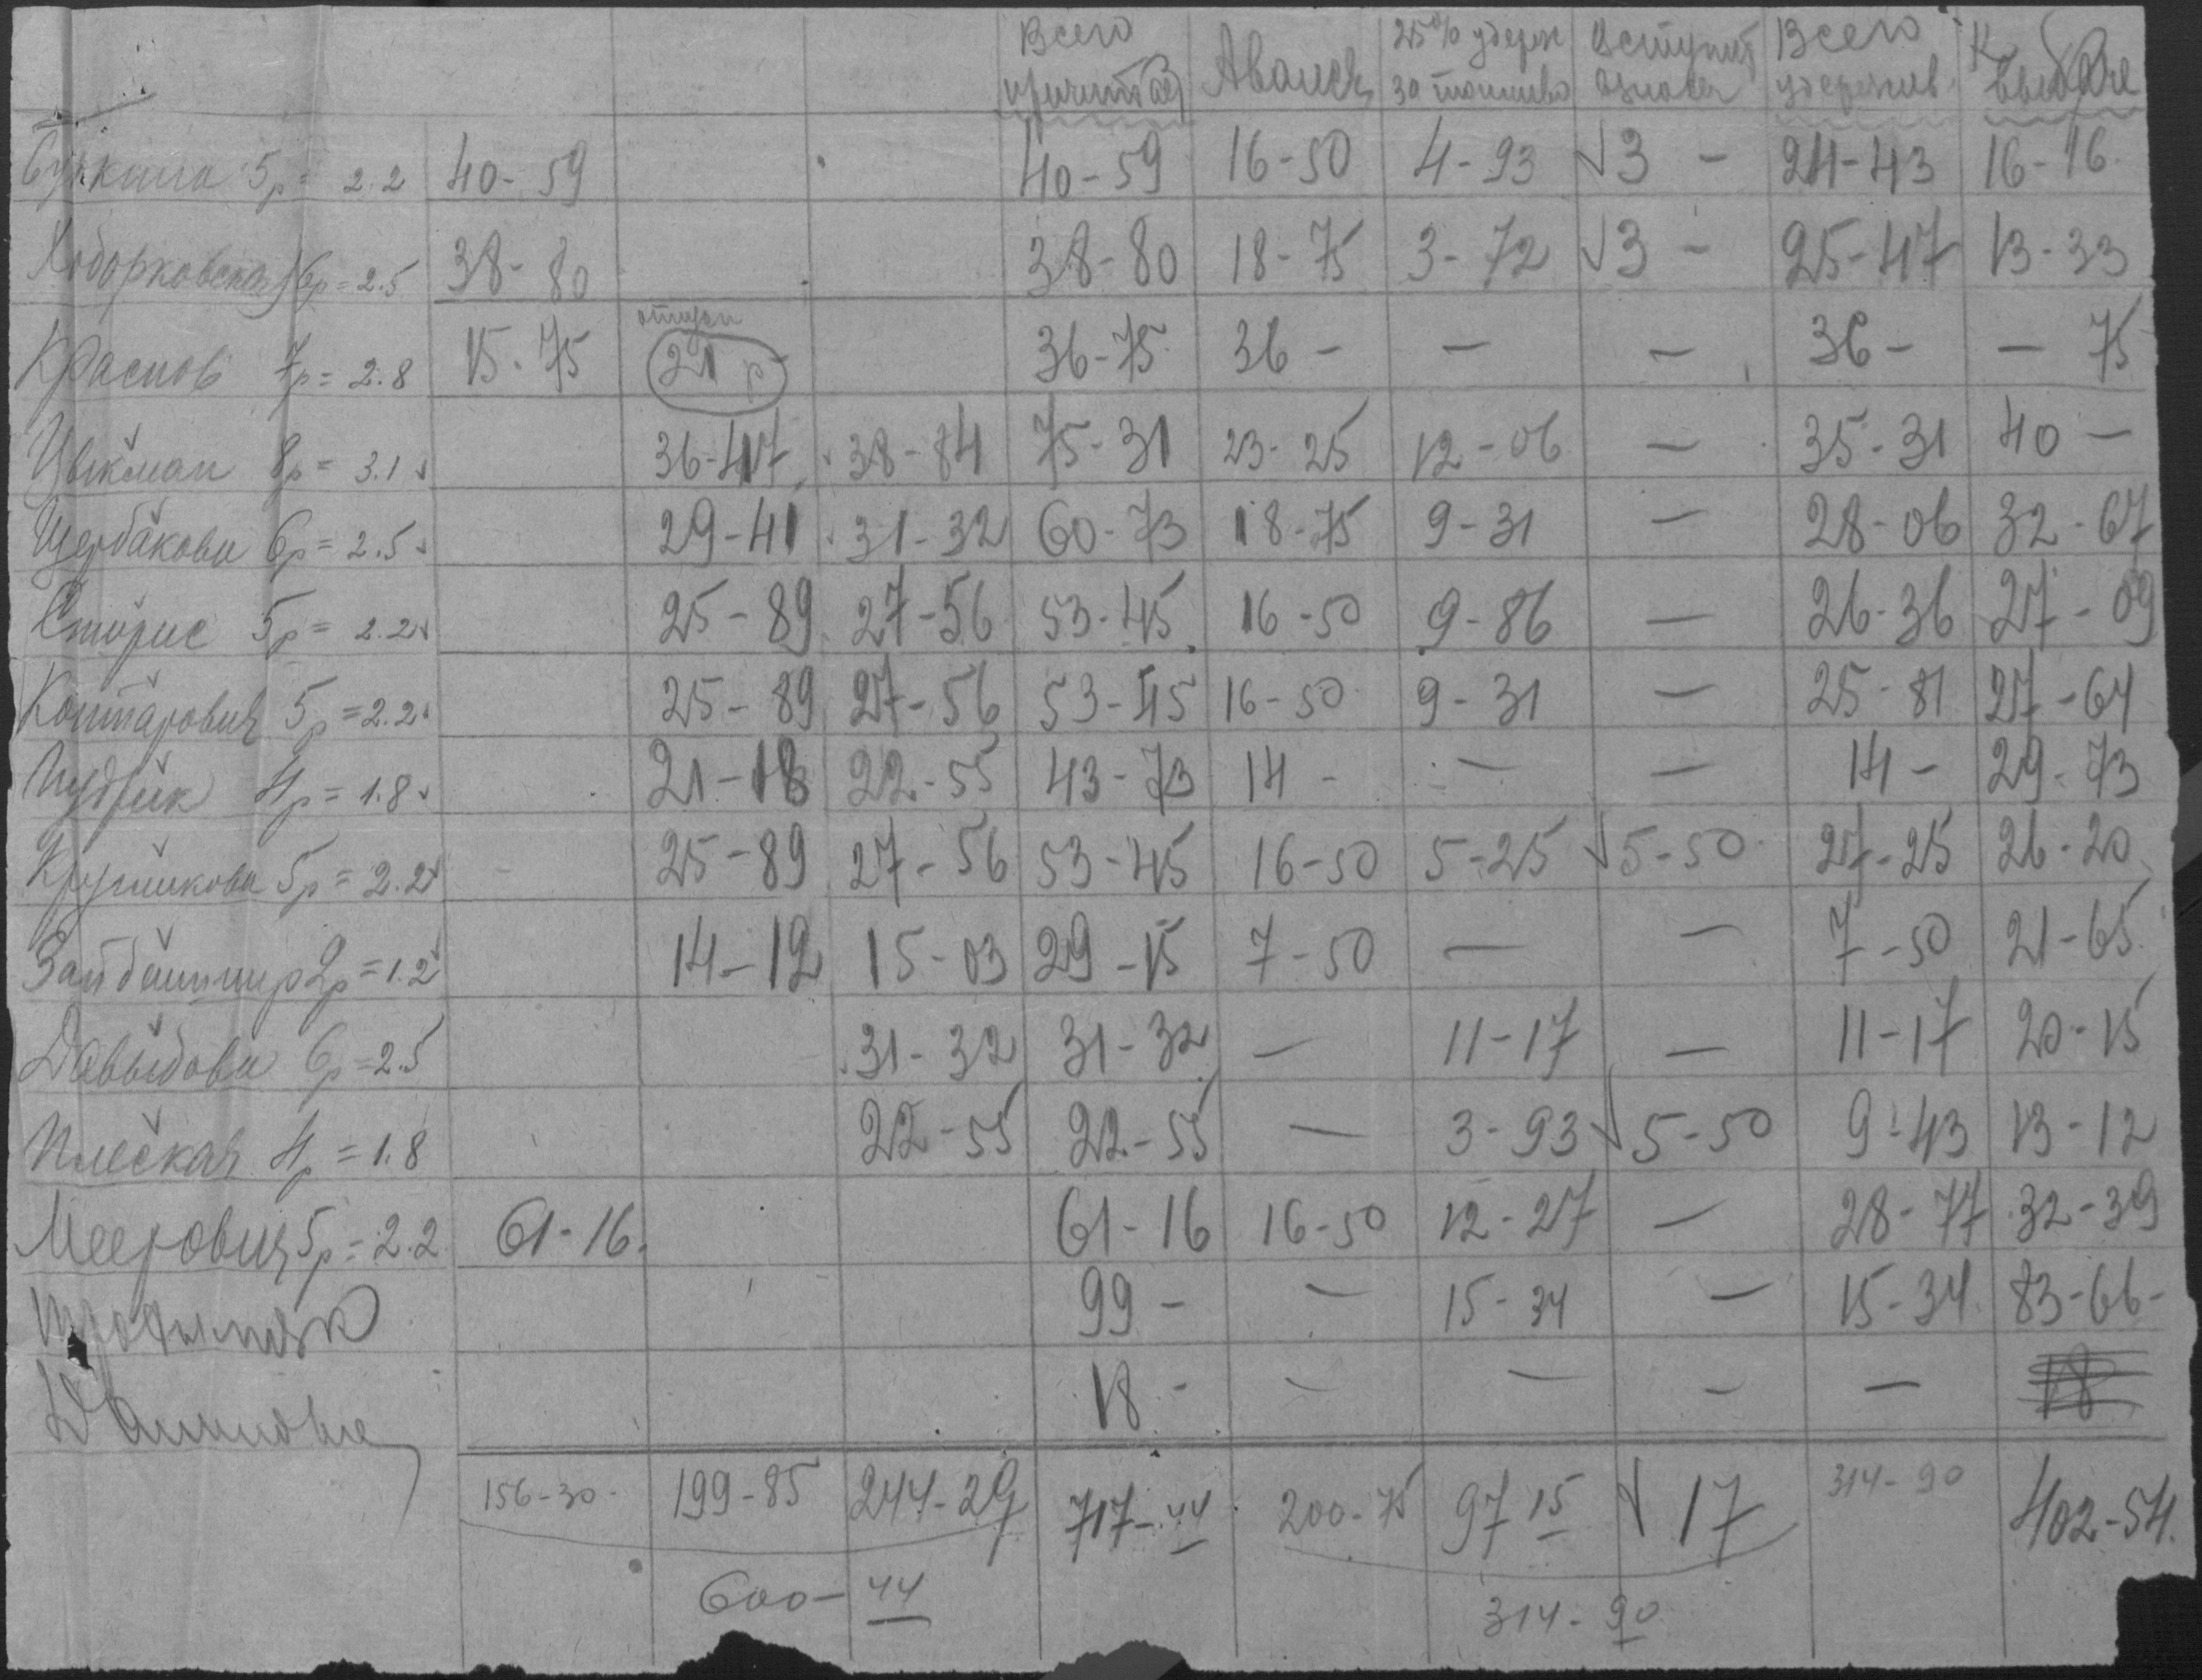 Всего причитается Аванс 25% удерж за топливо Вступит взнос Всего удержив К выдаче
5р = 2.2 40-59 40-59 16-50 4-93 √3 - 24-43 16-16
Ходорковская 6р = 2.5 38-80 38-80 18-75 3-72 √3 - 25-47 13-33
отпуск
Краснов 7р = 2.8 15-75 21 р 36-75 36 - — — 36 - — 75
Цвикман 8р = 3.1 √ 36-47 38-84 75-31 23-25 12-06 — 35-31 40 —
Щербакова 6р = 2.5 √ 29-41 31-32 60-73 18-75 9-31 — 28-06 32-67
5р = 2.2 √ 25-89 27-56 53-45 16-50 9-86 — 26-36 27-09
Контарович 5р = 2.2 √ 25-89 27-56 53-45 16-50 9-31 — 25-81 27-64
4р = 1.8 √ 21-18 22-55 43-73 14 - — — 14 - 29-73
Кругликова 5р = 2.2 √ 25-89 27-56 53-45 16-50 5-25 √5-50 27-25 26-20
2р = 1.2 √ 14-12 15-03 29-15 7-50 — — 7-50 21-65
Давыдова 6р = 2.5 31-32 31-32 — 11-17 — 11-17 20-15
4р = 1.8 22-55 22-55 — 3-93 √5-50 9-43 13-12
Меерович 5р = 2.2 61-16 61-16 16-50 12-27 — 28-77 32-39
99 - — 15-34 — 15-34 83-66-
18 - — — — — 18
156-30 199-85 244-29 717-44 200-75 97 15 √ 17 314-90 402-54
600-44 314-90